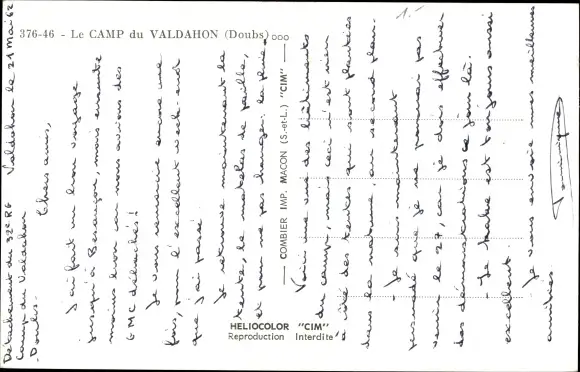 376-46 - Le CAMP du VALDAHON (Doubs)
1.-
Détachement du 32e RG Valdahon le 21 Mai 62
Camp du Valdahon
Doubs.
Chers amis,
J'ai fait un bon voyage
jusqu'à Besançon, mais ensuite
moins bon car nous avions des
GMC débachés!
Je vous remercie encore une
fois, pour l'excellent week-end
que j'ai passé.
Je retrouve maintenant la
tente, le matelas de paille,
et pour ne pas changer: la pluie
COMBIER IMP. MACON (S.-et-L.) "CIM"
Voici une vue des bâtiments
du camp, mais ceci n'est rien
à côté des tentes qui sont plantées
dans la nature, au second plan.
- Je suis maintenant
persuadé que je ne pourrai pas
venir le 27, car je dois effectuer
des démonstrations ce jour là.
- Le moral est toujours aussi
excellent.
- Je vous envoie mes meilleures
amitiés
Dominique
HELIOCOLOR "CIM"
Reproduction Interdite